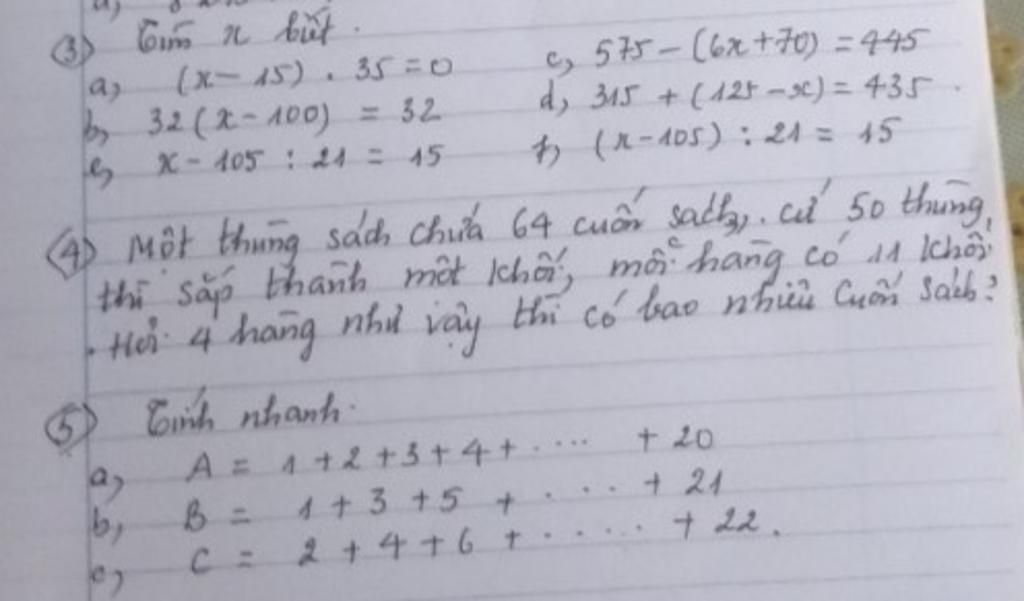 ③ Tìm x biết.
a, (x - 15) . 35 = 0 c, 575 - (6x + 70) = 445
b, 32(x - 100) = 32 d, 315 + (125 - x) = 435
e, x - 105 : 21 = 15 f, (x - 105) : 21 = 15
④ Một thùng sách chứa 64 cuốn sách, cứ 50 thùng
thì sắp thành một khối, mỗi hàng có 11 khối
Hỏi 4 hàng như vậy thì có bao nhiêu cuốn sách?
⑤ Tính nhanh.
a, A = 1 + 2 + 3 + 4 + .... + 20
b, B = 1 + 3 + 5 + .... + 21
c, C = 2 + 4 + 6 + ..... + 22.